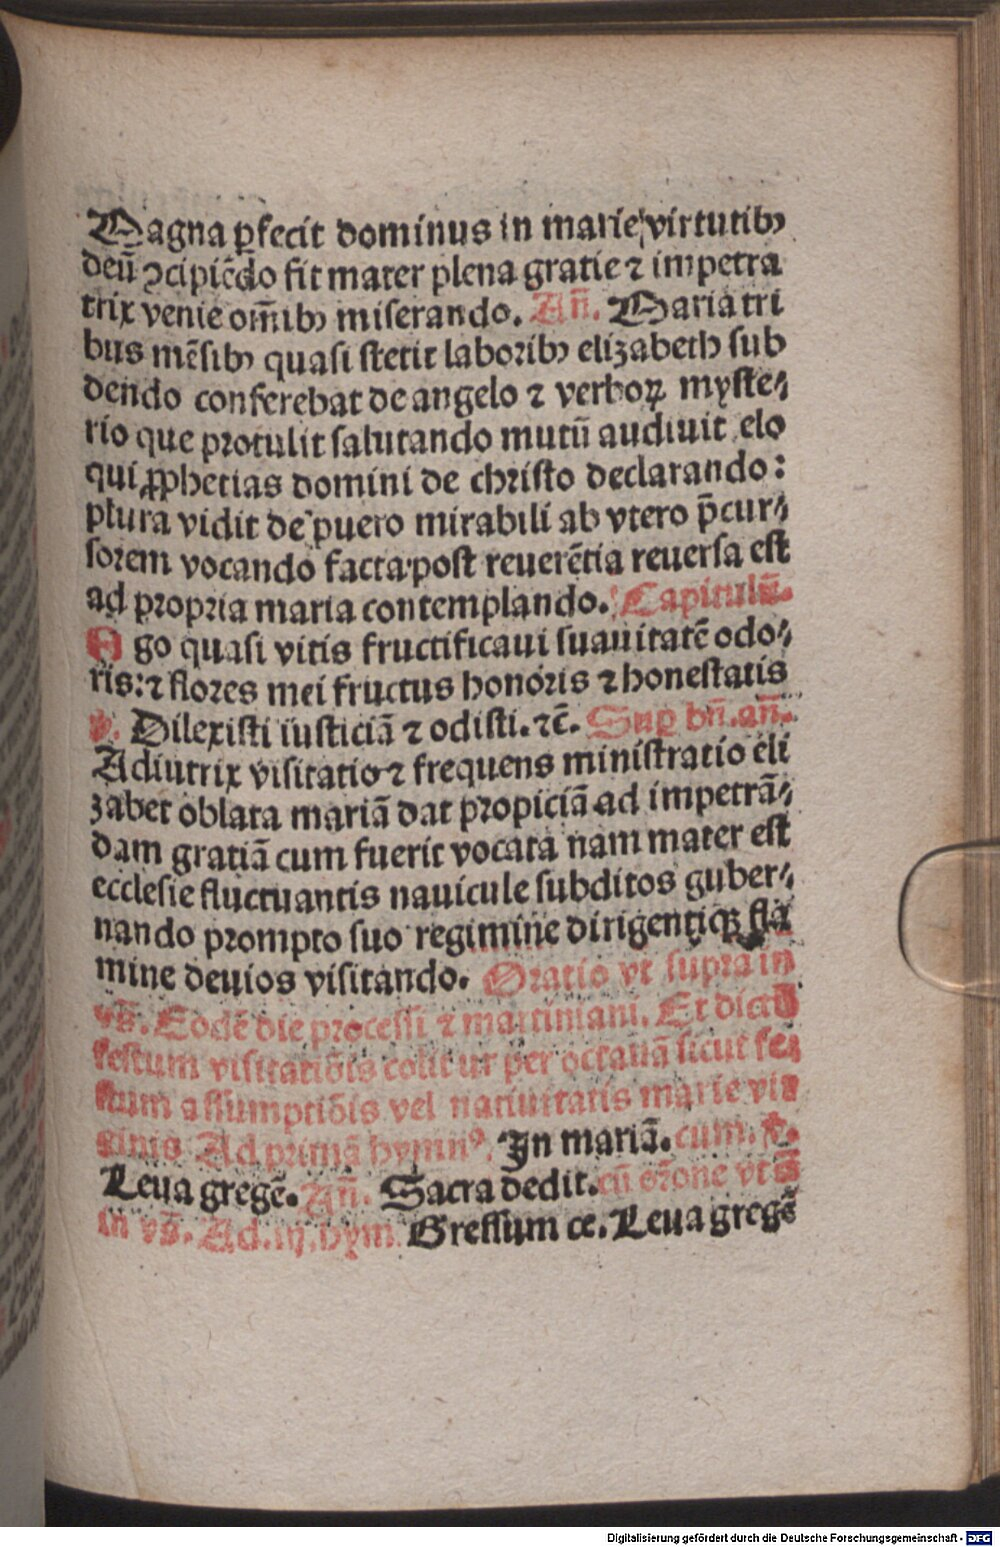 Magna ꝑfecit dominus in marie virtutibꝰ
deū ꝯcipiēdo fit mater plena gratie ⁊ impetra
trix venie om̄ibꝰ miserando. An̄. Maria tri
bus mēsibꝰ quasi stetit laboribꝰ elizabeth sub
dendo conferebat de angelo ⁊ verboꝝ myste⸗
rio que protulit salutando mutū audiuit elo
qui ꝓphetias domini de christo declarando:
plura vidit de puero mirabili ab vtero p̄cur⸗
sorem vocando facta post reuerētia reuersa est
ad propria maria contemplando. Capitulū.
Ego quasi vitis fructificaui suauitatē odo⸗
ris: ⁊ flores mei fructus honoris ⁊ honestatis
℣. Dilexisti iusticiā ⁊ odisti. ⁊c̄. Suꝑ bn̄. an̄.
Adiutrix visitatio ⁊ frequens ministratio eli
zabet oblata mariā dat propiciā ad impetrā⸗
dam gratiā cum fuerit vocata nam mater est
ecclesie fluctuantis nauicule subditos guber⸗
nando prompto suo regimine dirigentiqꝫ fla
mine deuios visitando. Oratio vt supra in
vs̄. Eodē die processi ⁊ martiniani. Et dictū
festum visitatiōis colitur per octauā sicut fe⸗
stum assumptiōis vel natiuitatis marie vir
ginis Ad primā hymnꝰ. In mariā. cum. ℣.
Leua gregē. An̄. Sacra dedit. cū oröne vt s̄
in vs̄. Ad. iij. hym Gressum ce. Leua gregē
Digitalisierung gefördert durch die Deutsche Forschungsgemeinschaft - DFG